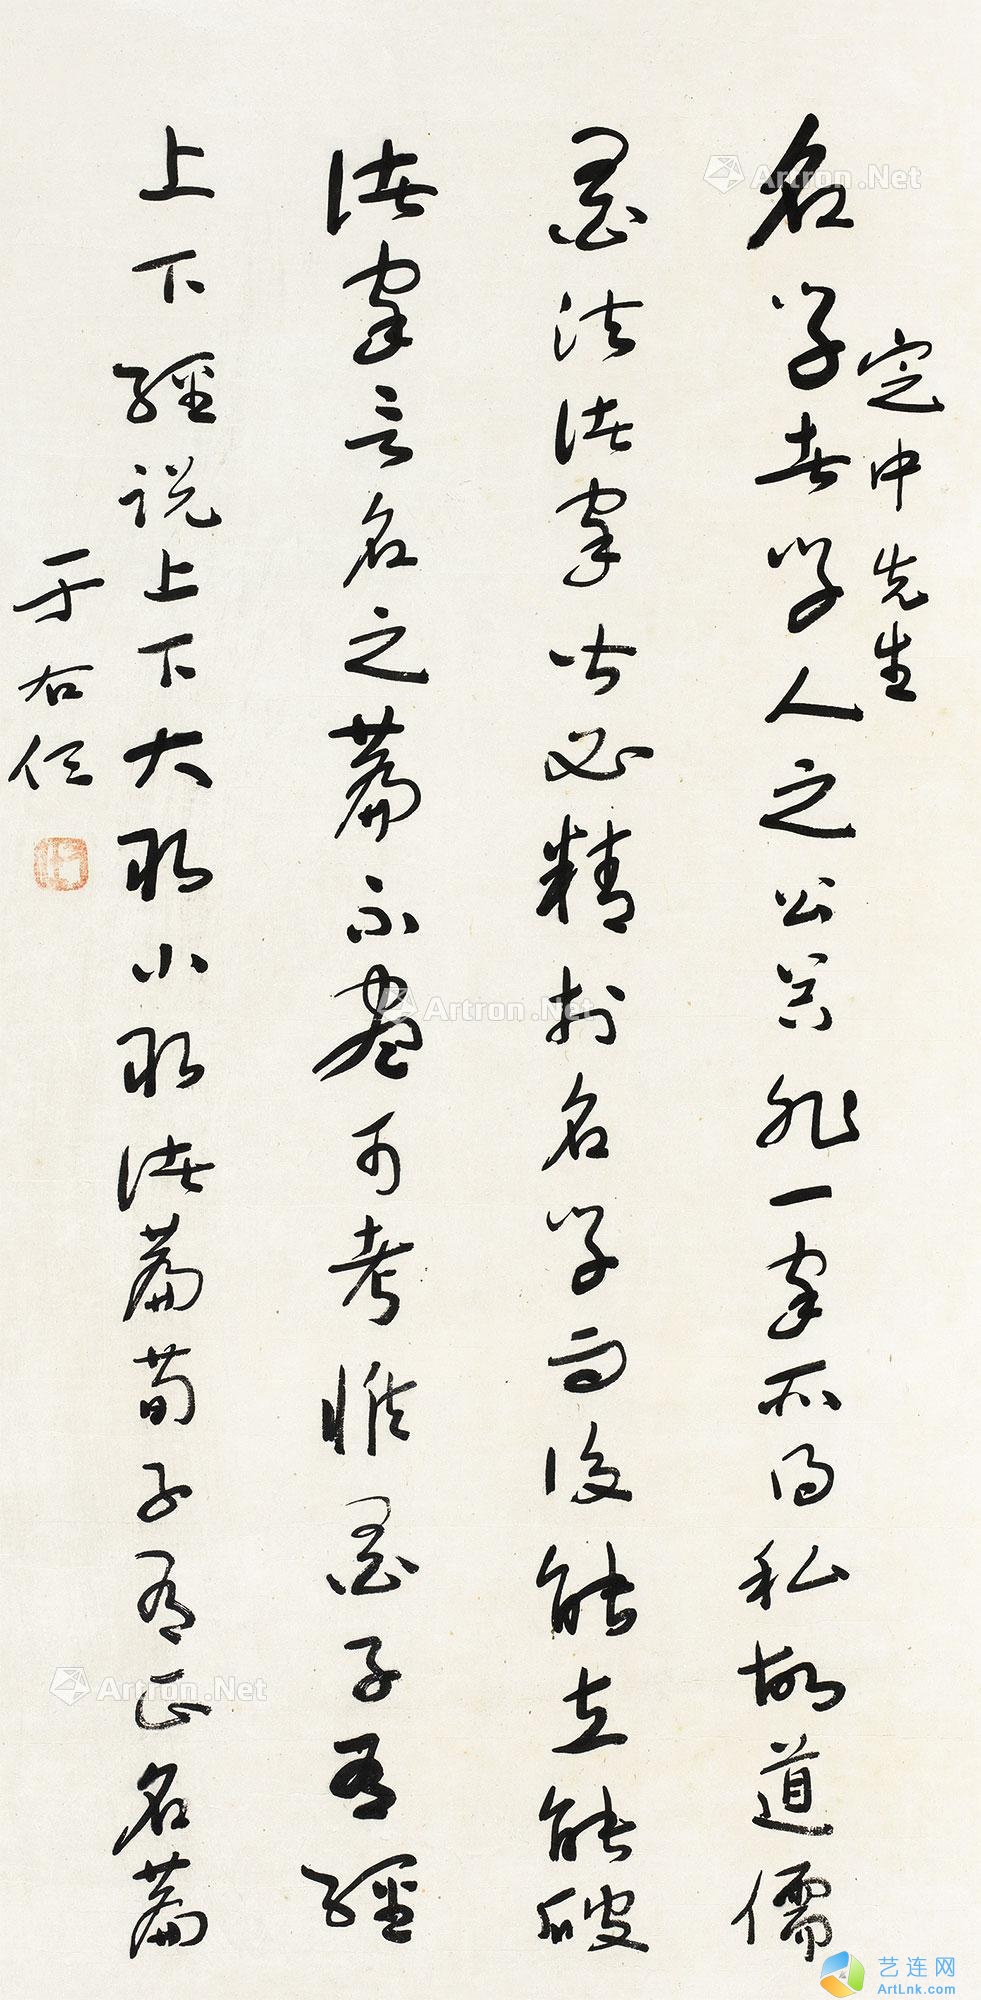 定中先生
名学者学人之公器非一家所得私故道儒
墨法诸家皆必精于名学而後能立能破
诸家言名之篇不尽可考惟墨子有經
上下經说上下大取小取诸篇荀子有正名篇
于右任
Artron.Net
Artron.Net
Artron.Net
艺连网
ArtLnk.com